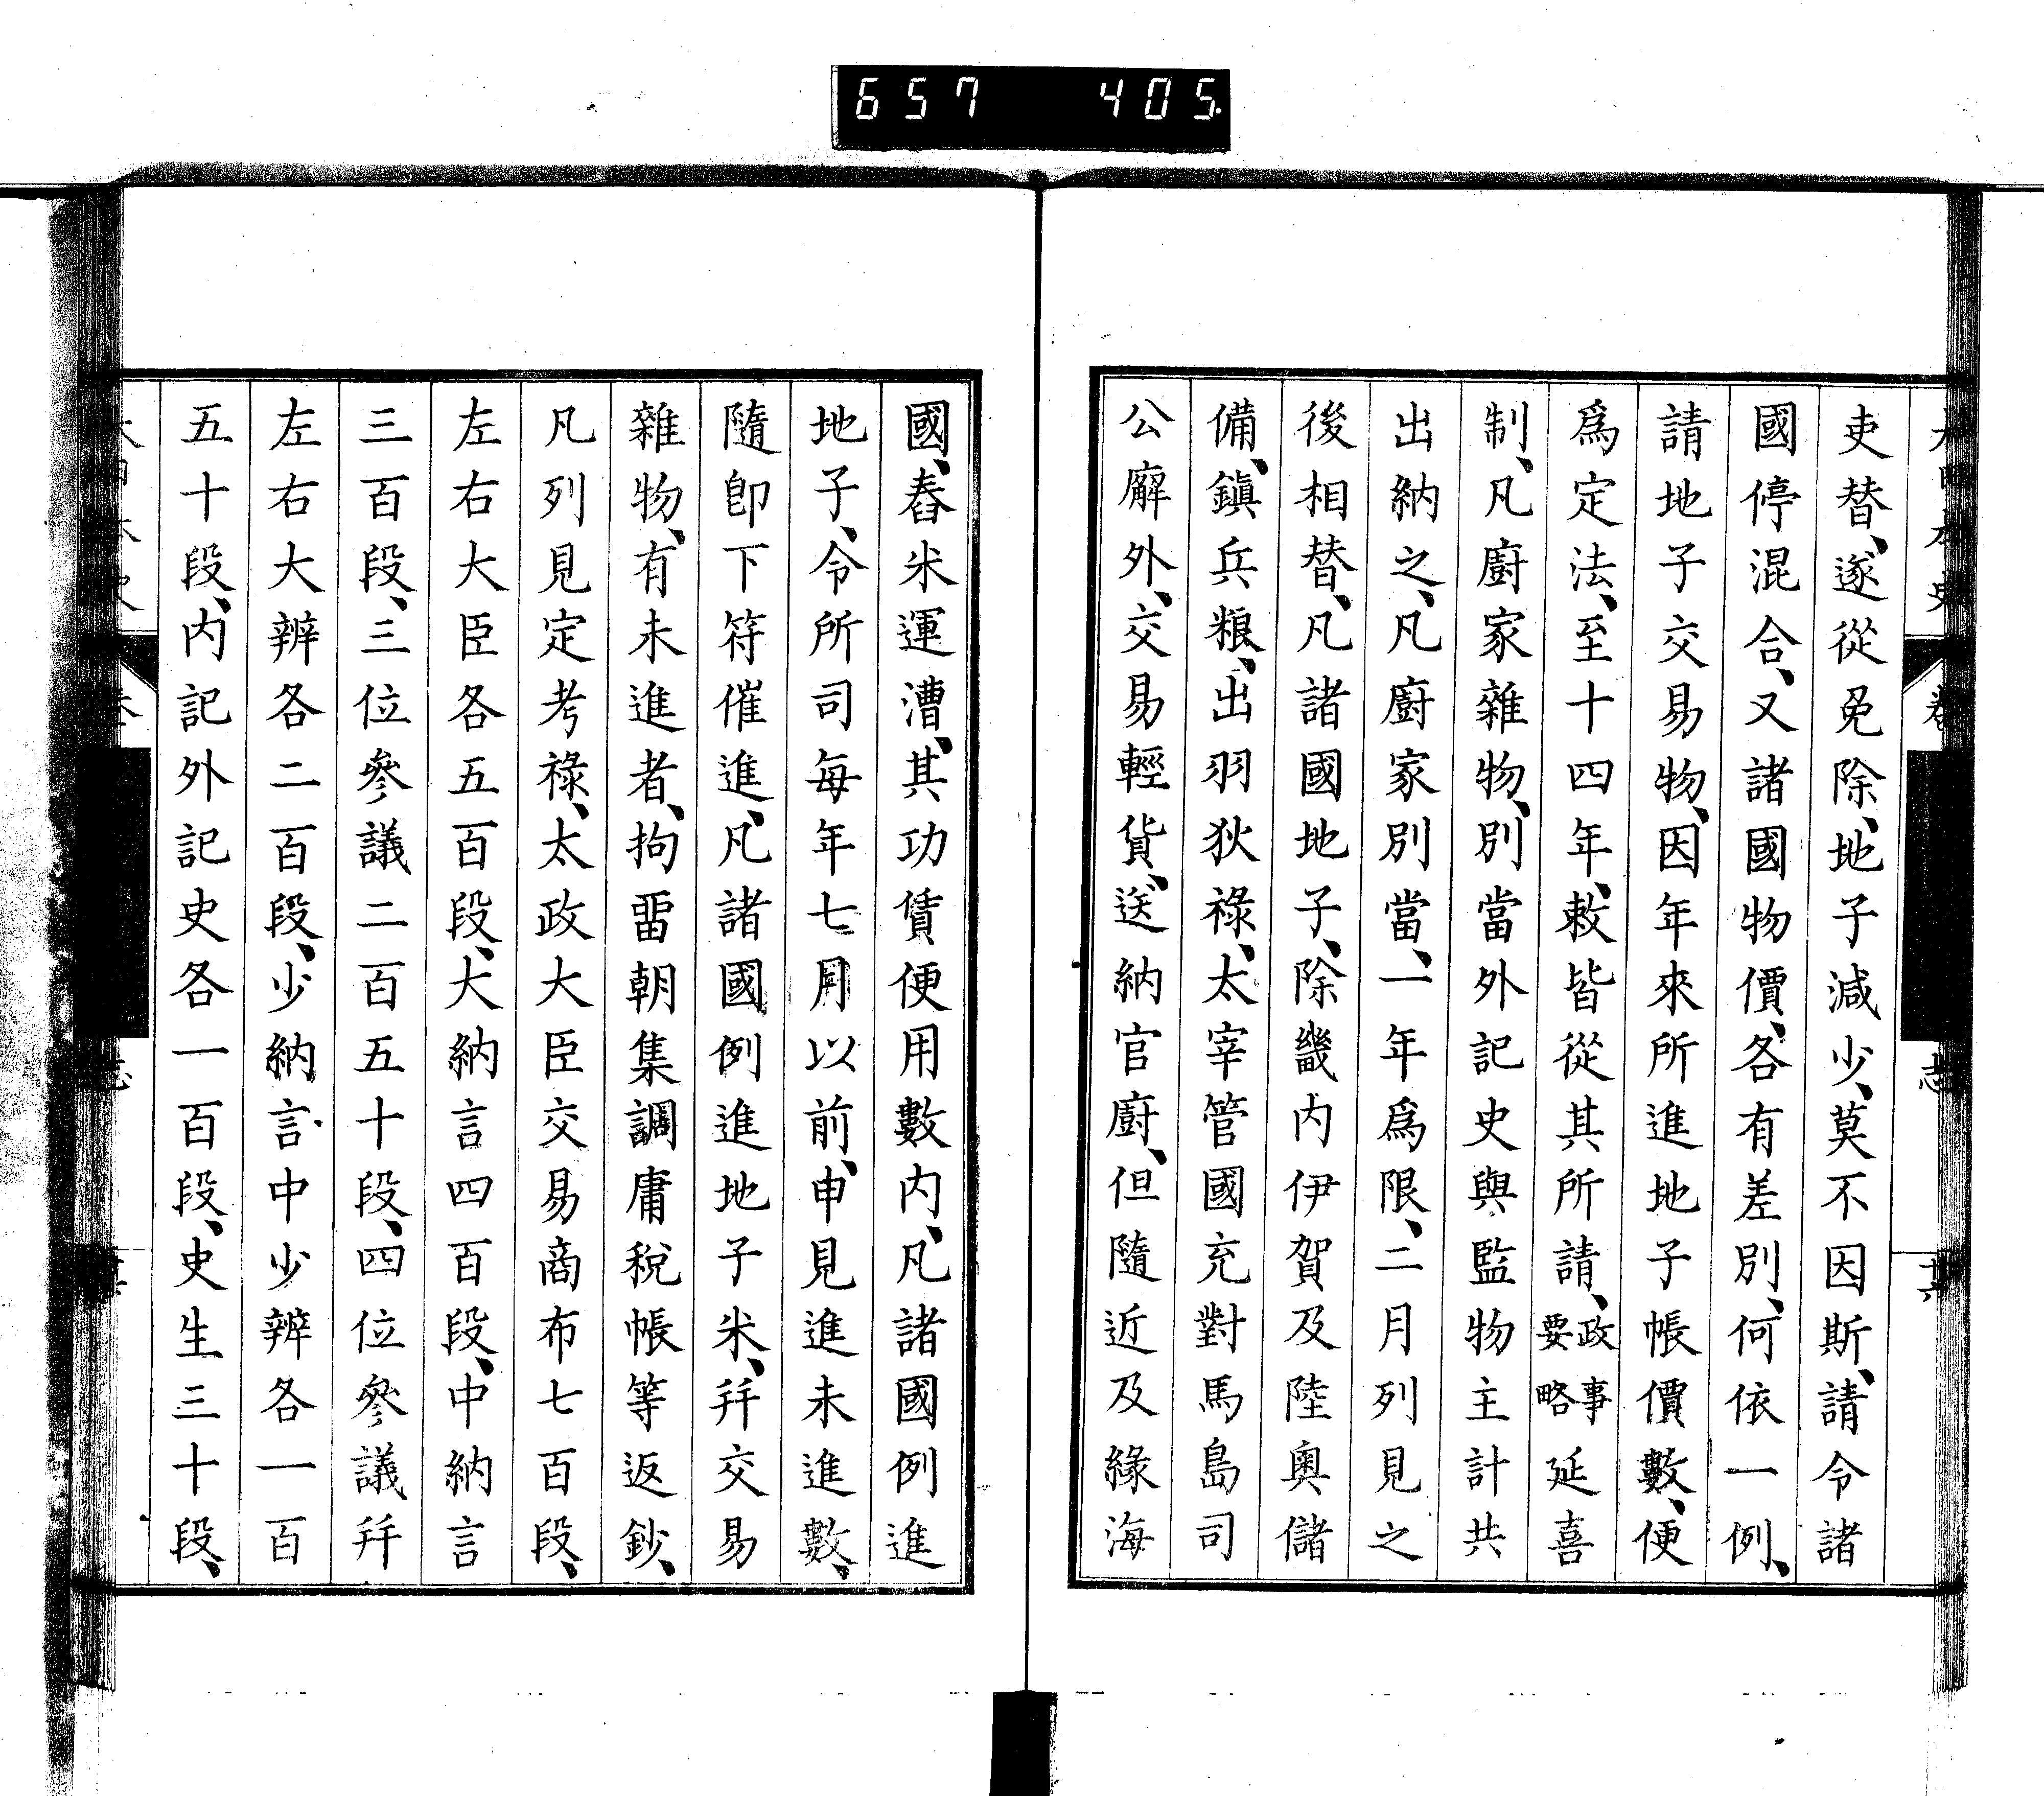 657 405
大日本史 卷 志 其
吏替、遂從免除、地子減少、莫不因斯、請令諸
國停混合、又諸國物價、各有差別、何依一例、
請地子交易物、因年來所進地子帳價數、便
爲定法、至十四年、敕皆從其所請、政事要略延喜
制、凡廚家雜物、別當外記史與監物主計共
出納之、凡廚家別當、一年爲限、二月列見之
後相替、凡諸國地子、除畿內伊賀及陸奧儲
備、鎭兵粮、出羽狄祿、太宰管國充對馬島司
公廨外、交易輕貨、送納官廚、但隨近及緣海
國、舂米運漕、其功賃便用數內、凡諸國例進
地子、令所司每年七月以前、申見進未進數、
隨卽下符催進、凡諸國例進地子米、幷交易
雜物、有未進者、拘畱朝集調庸稅帳等返鈔、
凡列見定考祿、太政大臣交易商布七百段、
左右大臣各五百段、大納言四百段、中納言
三百段、三位參議二百五十段、四位參議幷
左右大辨各二百段、少納言中少辨各一百
五十段、內記外記史各一百段、史生三十段、